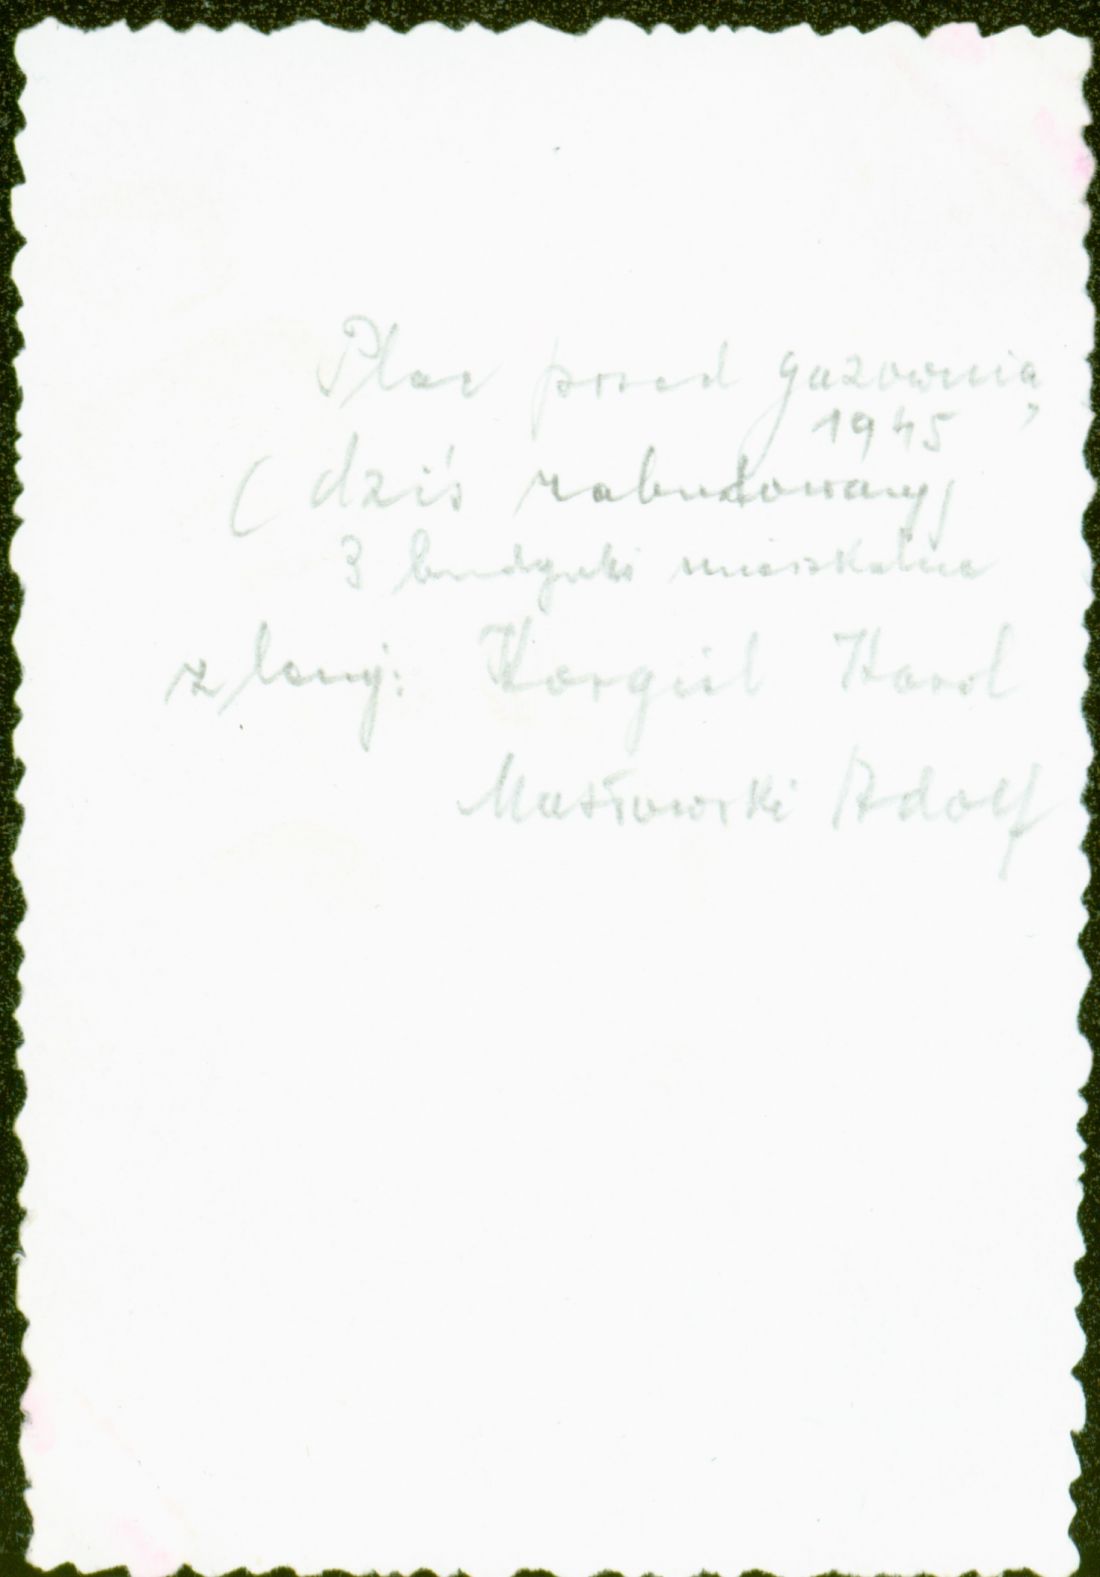 Plac przed gazownią
1945
(dziś zabudowany)
3 budynki mieszkalne
z lewej: Korgiel Karol
Masłowski Adolf